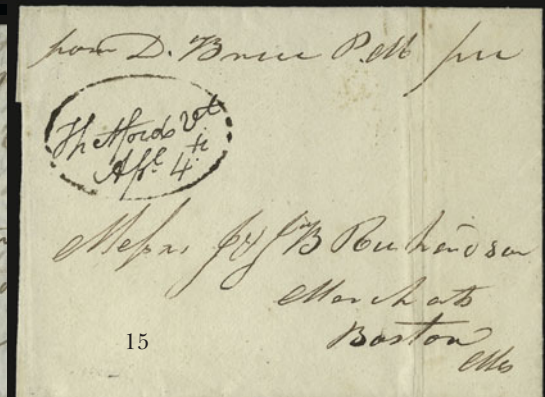 from D. Bruce P.M free
Thetford Vt
Apl. 4th
Messrs J & J B Richardson
Merchants
Boston
Ms
15